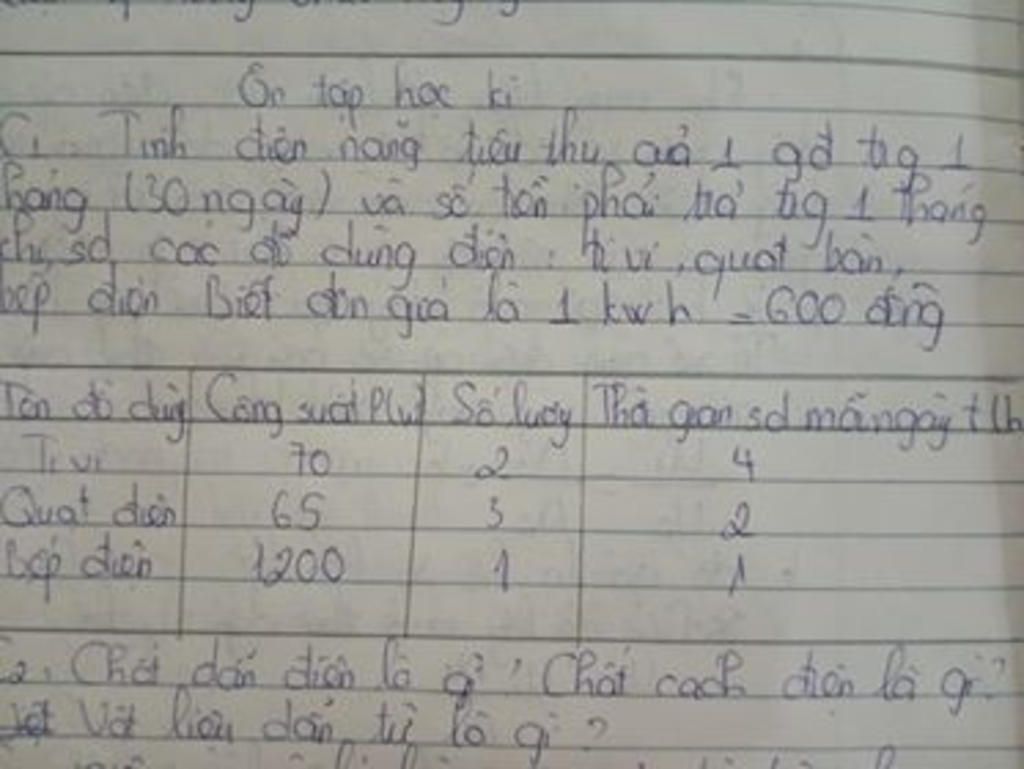 Ôn tập học kì
C1. Tính điện năng tiêu thụ quả 1 gđ trg 1
tháng (30 ngày) và số tiền phải trả trg 1 tháng
chỉ sd các đồ dùng điện: ti vi, quạt bàn,
bếp điện Biết đơn giá là 1 kwh = 600 đồng
Tên đồ dùg Công suất P(w) Số lượg Thời gian sd mỗi ngày t(h
Ti vi 70 2 4
Quạt điện 65 3 2
Bếp điện 1200 1 1
C2. Chất dẫn điện là gì? Chất cách điện là gì?
Vật liệu dẫn từ là gì?